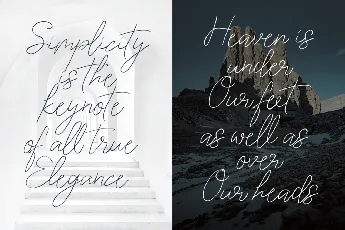 Simplicity
is the
keynote
of all true
Elegance
Heaven is
under
Our feet
as well as
over
Our heads